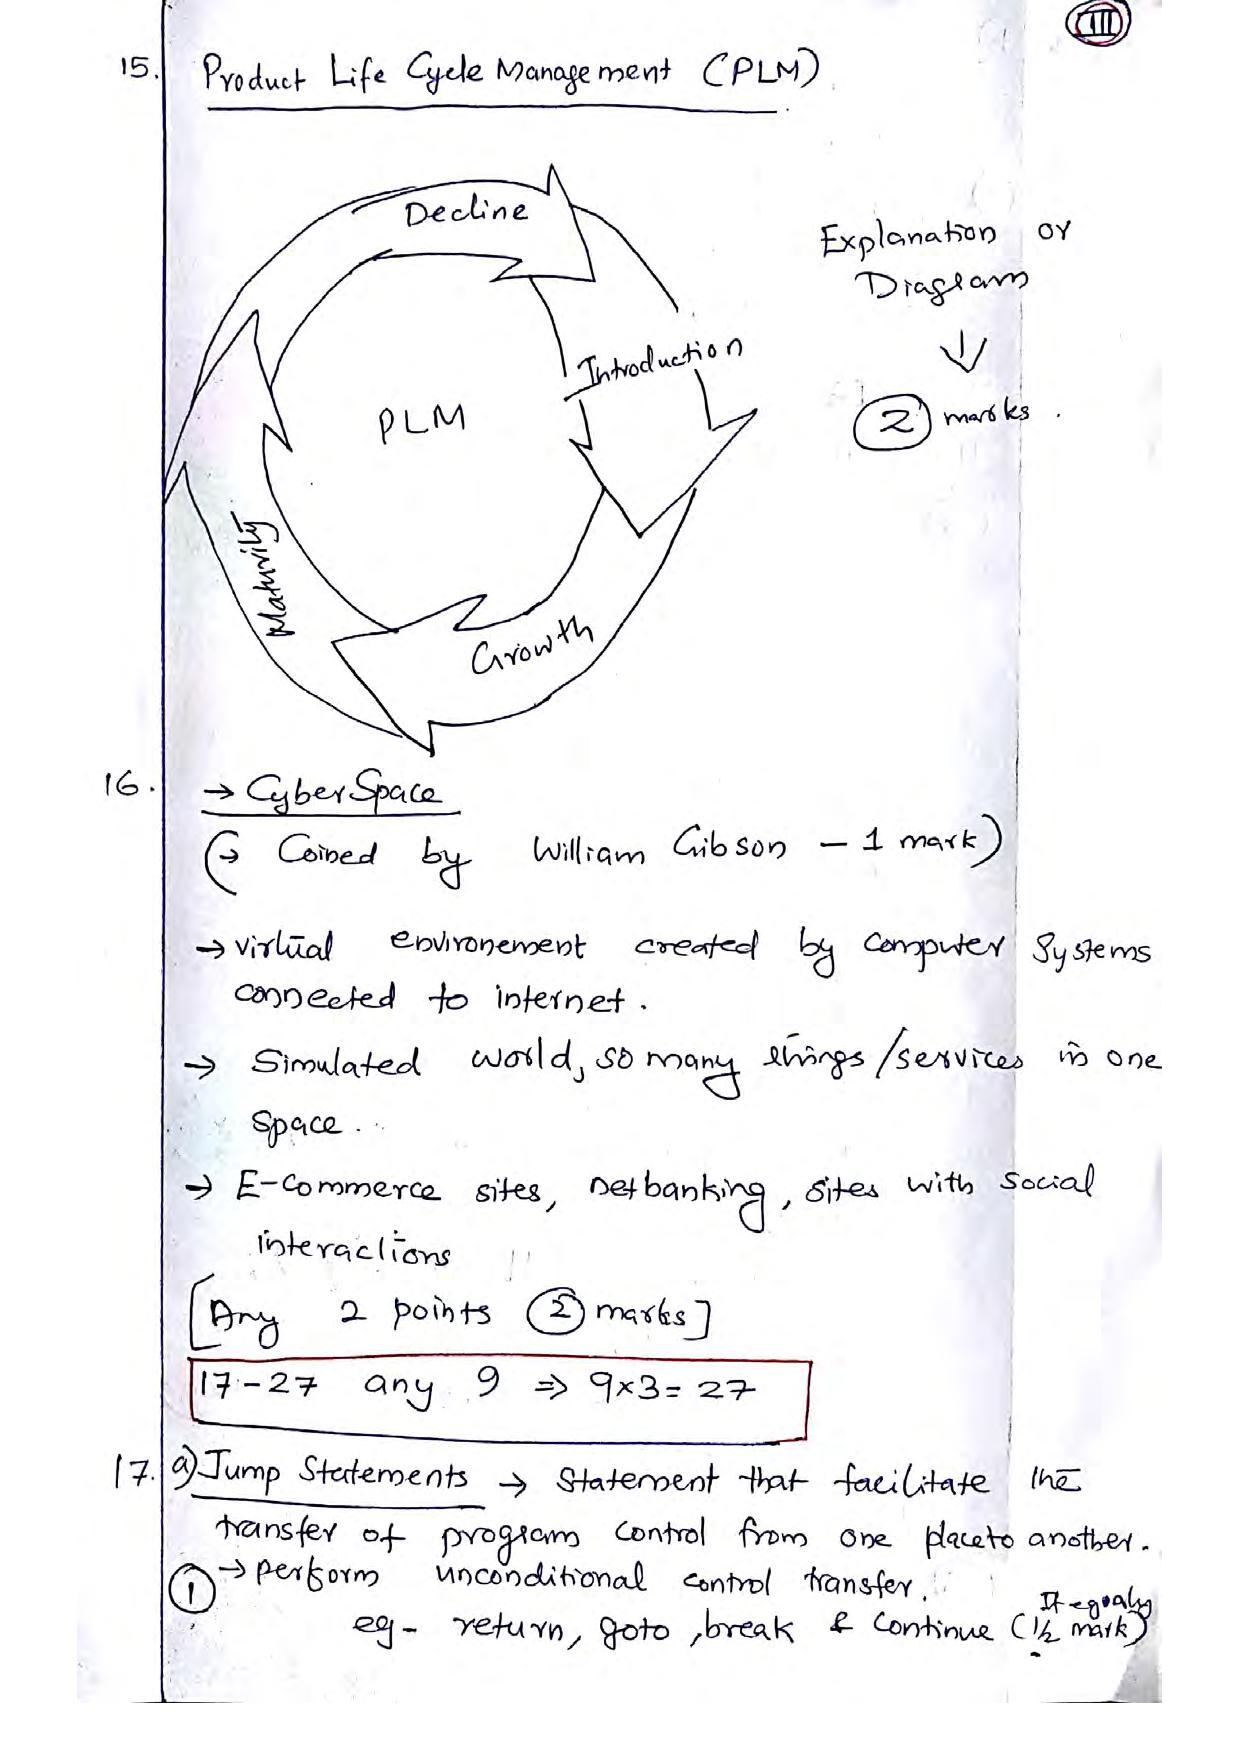 III
15. Product Life Cycle Management (PLM)
Decline
Explanation or
Diagram
Introduction
PLM
2 marks.
Maturity
Growth
16. → CyberSpace
(→ Coined by William Gibson - 1 mark)
→ virtual environement created by computer Systems
connected to internet.
→ Simulated world, so many things/services in one
Space.
→ E-Commerce sites, netbanking, sites with social
interactions
[Any 2 points 2 marks]
17-27 any 9 ⇒ 9x3= 27
17. a) Jump Statements → Statement that facilitate the
transfer of program control from one place to another.
1 → perform unconditional control transfer.
eg- return, goto, break & continue (If eg only 1/2 mark)